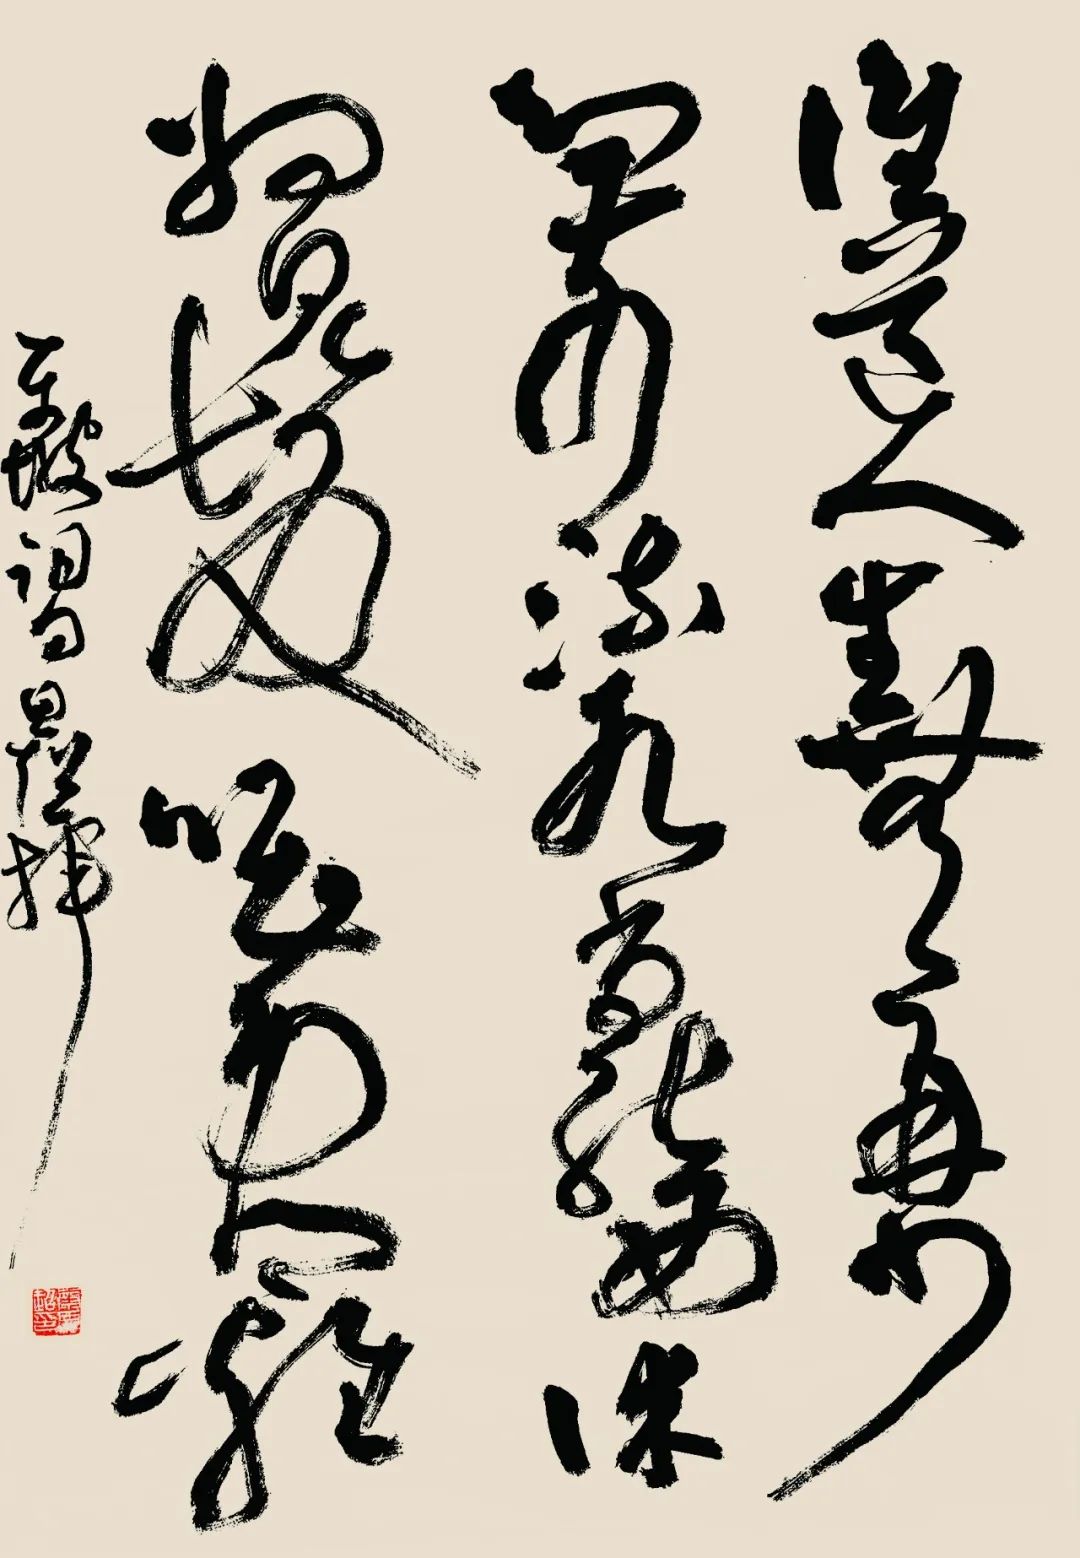 谁道人生无再少
门前流水尚能西休
将白发唱黄鸡
东坡词句晨挥